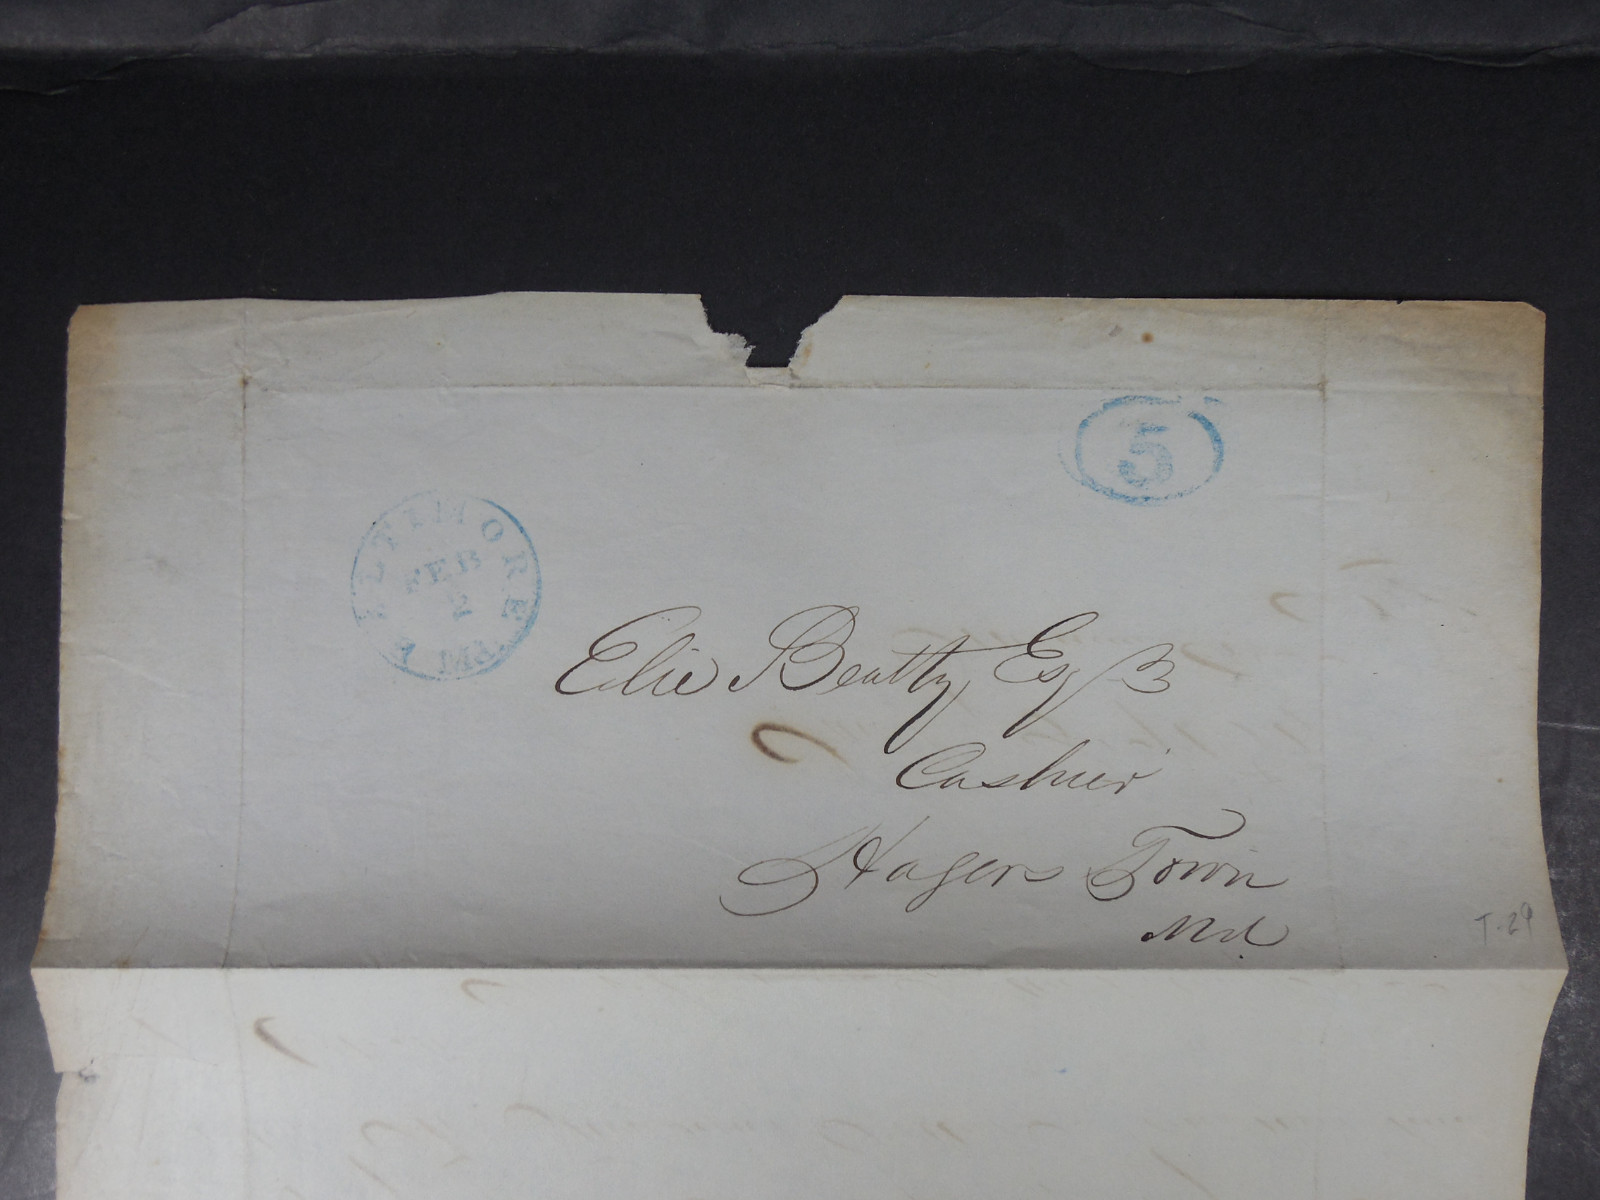 5
BALTIMORE
FEB
2
Md.
Elie Beatty, Esqr
Cashier
Hagers Town
Md.
T-29